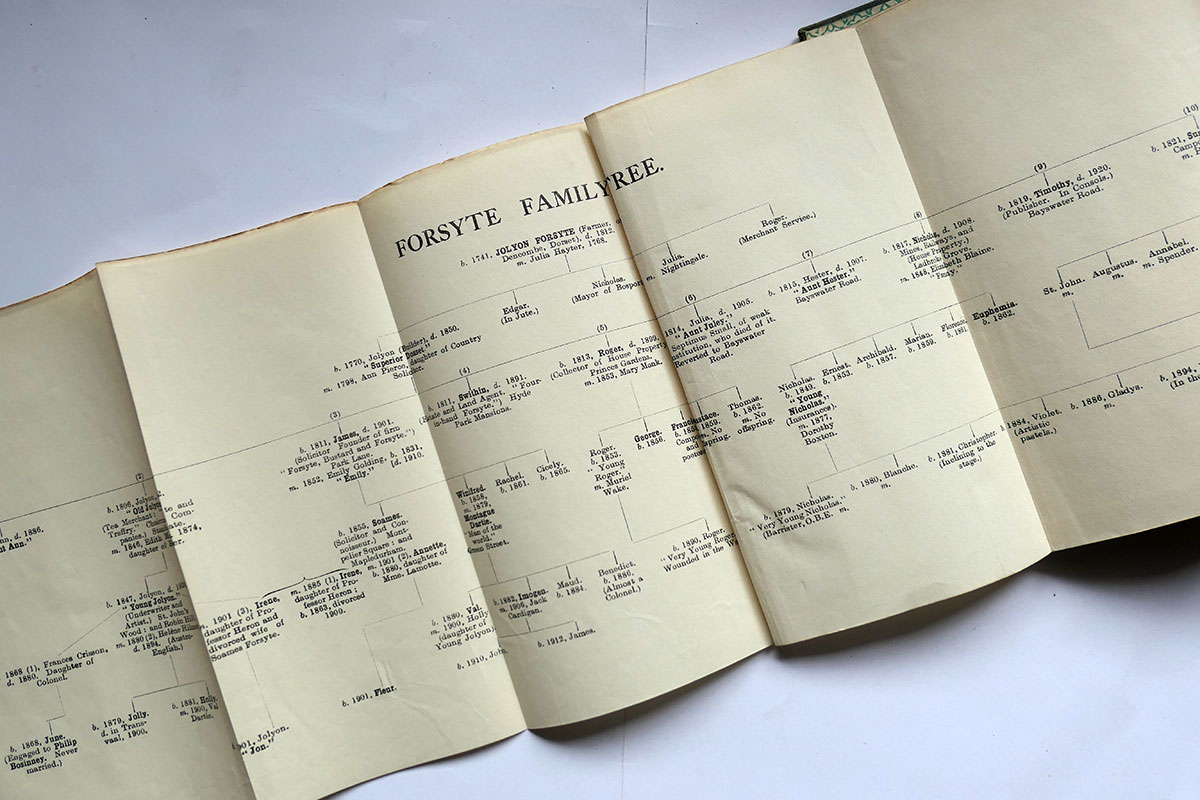 FORSYTE FAMILY TREE.
b. 1741, JOLYON FORSYTE (Farmer,
Dencombe, Dorset), d. 1812.
m. Julia Hayter, 1768.
1770, Jolyon (Builder), d. 1850.
"Superior Dosset."
m. 1798, Ann Pierce, daughter of Country
Solicitor.
Edgar.
(In Jute.)
Nicholas.
(Mayor of
Julia.
m. Nightingale.
Roger.
(Merchant Service.)
d. 1886.
Ann."
(2)
b. 1806, Jolyon,
"Old
(Tea Merchant:
Treffry." Chairman
panies.)
m. 1846, Edith
daughter of
te and
Com-
1874,
(3)
b. 1811, James, d. 1901.
(Solicitor Founder of firm
"Forsyte, Bustard and Forsyte.")
Park Lane.
m. 1852, Emily Golding, b. 1831,
"Emily." d. 1910.
(4)
b. 1811, Swithin, d. 1891.
(Estate and Land Agent. "Four-
in-hand Forsyte.") Hyde
Park Mansions.
(5)
b. 1813, Roger, d. 1899.
(Collector of House Property
Princes Gardens.
m. 1853, Mary Monk.
(6)
1814, Julia, d. 1905.
"Aunt Juley."
Septimus Small, of weak
constitution, who died of it.
Reverted to Bayswater
Road.
(7)
b. 1815, Hester, d. 1907.
"Aunt Hester."
Bayswater Road.
(8)
b. 1817, Nicholas, d. 1908.
Mines, Railways, and
(House Property.)
Ladbroke Grove.
m. 1848, Elizabeth Blaine.
"Fanny."
(9)
b. 1819, Timothy, d. 1920.
(Publisher. In Consols.)
Bayswater Road.
(10)
b. 1821,
m.
b. 1847, Jolyon, d.
"Young Jolyon."
(Underwriter and
Artist.) St. John's
Wood: and Robin Hill
m. 1880 (2), Hélène
d. 1894. (Austro-
English.)
1868 (1), Frances Crisson,
d. 1880. Daughter of
Colonel.
1901 (3), Irene,
daughter of Pro-
fessor Heron and
divorced wife of
Soames Forsyte.
b. 1855, Soames.
(Solicitor and Con-
noisseur.) Mont-
pelier Square: and
Mapledurham.
m. 1885 (1), Irene,
daughter of Pro-
fessor Heron;
b. 1863, divorced
1900.
m. 1901 (2), Annette,
b. 1880, daughter of
Mme. Lamotte.
Winifred.
b. 1858,
m. 1879,
Montague
Dartie.
"Man of the
world."
Green Street.
Rachel.
b. 1861.
Cicely.
b. 1865.
Roger.
b. 1853.
"Young
Roger."
m. Muriel
Wake.
George.
b. 1856.
Francie.
Eustace.
1859.
No
spring.
Thomas.
b. 1862.
m. No
offspring.
Nicholas.
b. 1849.
"Young
Nicholas."
(Insurances).
m. 1877.
Dorothy
Boxton.
Ernest.
b. 1853.
Archibald.
b. 1857.
Marian.
b. 1859.
Florence.
b. 1861.
Euphemia.
b. 1862.
St. John.
m.
Augustus.
m.
Annabel.
m. Spender.
b. 1868, June.
(Engaged to Philip
Bosinney. Never
married.)
b. 1879, Jolly.
d. in Trans-
vaal, 1900.
b. 1881, Holly.
m. 1900, Val
Dartie.
1901, Jolyon.
"Jon."
b. 1901, Fleur.
b. 1880, Val.
m. 1900, Holly
(daughter of
Young Jolyon).
b. 1882, Imogen.
m. 1906, Jack
Cardigan.
Maud.
b. 1884.
Benedict.
b. 1886.
(Almost a
Colonel.)
b. 1910, John.
b. 1912, James.
b. 1890, Roger.
"Very Young Roger
Wounded in the
b. 1879, Nicholas.
"Very Young Nicholas."
(Barrister, O.B.E.
b. 1880, Blanche.
m.
b. 1881, Christopher.
(Inclining to the
stage.)
1884, Violet.
(Artistic
pastels.)
b. 1886, Gladys.
m.
b. 1894,
(In the